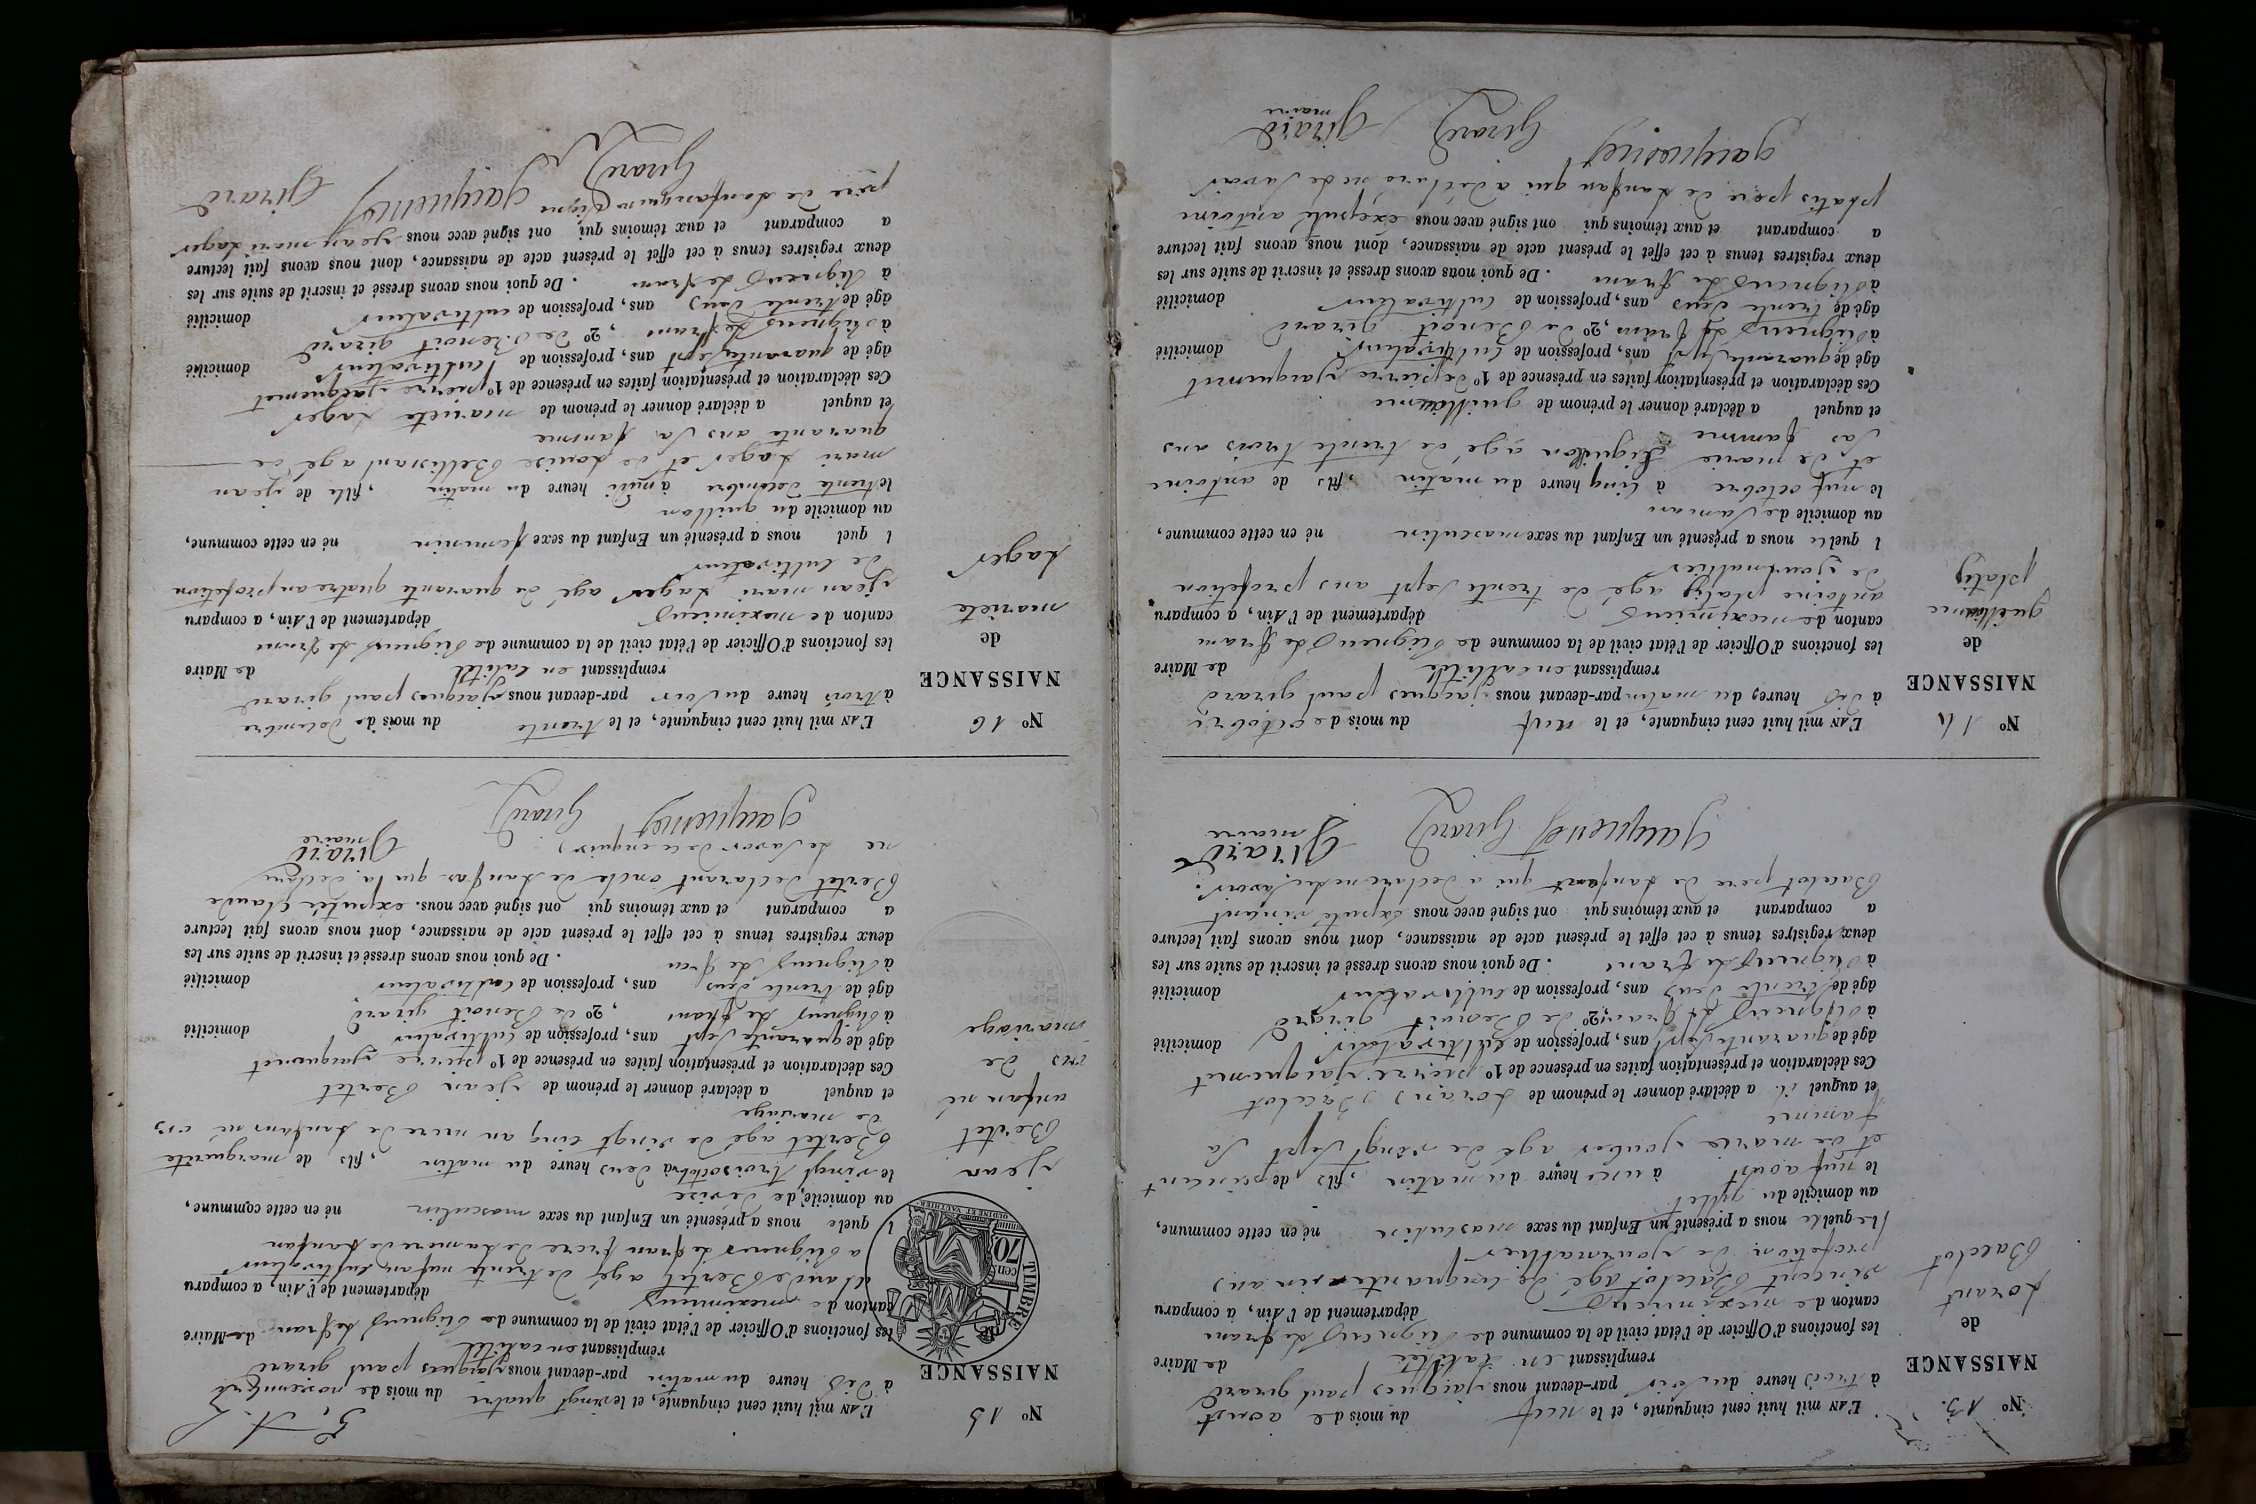 N° 13.
NAISSANCE
de
Lorant
Bacelot
L'AN mil huit cent cinquante, et le neuf du mois de aoust
à trois heure du soir par-devant nous jaiques paul girard
remplissant en calitté de Maire
les fonctions d'Officier de l'état civil de la commune de Rigneus le franc
canton de meximieus département de l'Ain, a comparu
vincent Bacelot agé de cinquante ans
profetion de journallier
lequelle nous a présenté un Enfant du sexe masculin né en cette commune,
au domicile du gillet
le neuf aoust à une heure du matin, fils de vincent
et de marie agé de vingt sept sa
famme
et auquel il a déclaré donner le prénom de Lorans Bacelot
Ces déclaration et présentation faites en présence de 1° pierre jaiquemet
âgé de quarante sept ans, profession de cultivateur domicilié
à Rigneus le franc, 2° de Benoit girard
âgé de trente deus ans, profession de cultivateur domicilié
à Rigneus le franc. De quoi nous avons dressé et inscrit de suite sur les
deux registres tenus à cet effet le présent acte de naissance, dont nous avons fait lecture
a comparant et aux témoins qui ont signé avec nous exepté vincant
Bacelot pere de lanfant qui a declaré ne le savoir.
Jaquemet Girard Girard
maire
N° 14
NAISSANCE
de
guillaume
platy
L'AN mil huit cent cinquante, et le neuf du mois de octobre
à dis heures du matin par-devant nous jaiques paul girard
remplissant en calitté de Maire
les fonctions d'Officier de l'état civil de la commune de Rigneus le franc
canton de meximieus département de l'Ain, a comparu
antoine platy agé de trente sept ans profetion
de journallier
l quelle nous a présenté un Enfant du sexe masculin né en cette commune,
au domicile de
le neuf octobre à cinq heure du matin, fils de antoine
et de marie agé de trente trois ans
sas famme
et auquel a déclaré donner le prénom de guillaume
Ces déclaration et présentation faites en présence de 1° de pierre jaiquemet
âgé de quarante sept ans, profession de cultivateur domicilié
à Rigneus le franc, 2° de Benoit girard
âgé de trente deus ans, profession de cultivateur domicilié
à Rigneus le franc. De quoi nous avons dressé et inscrit de suite sur les
deux registres tenus à cet effet le présent acte de naissance, dont nous avons fait lecture
a comparant et aux témoins qui ont signé avec nous exepté antoine
platis pere de lanfan qui a déclaré ne le savoir
jaquemet Girard Girard
maire
N° 15
NAISSANCE
TIMBRE
70 cen.
OUDINÉ ET VAUTHIER
jean
Bertet
anfan né
ors de
mariage
L'AN mil huit cent cinquante, et le vingt quatre du mois de novembre
à dis heure du matin par-devant nous jaiques paul girard
remplissant en calitté de Maire
les fonctions d'Officier de l'état civil de la commune de Rigneus le franc
canton de meximieus département de l'Ain, a comparu
claude Bertet agé de trente neuf ans cultivateur
a Rigneus le fran frere de la mere de lanfan
l quele nous a présenté un Enfant du sexe masculin né en cette commune,
au domicile de
le vingt trois octobre à deus heure du matin, fils de marguerite
Bertet agé de vingt cinq an mere de lanfans né ors
de mariage
et auquel a déclaré donner le prénom de jean Bertet
Ces déclaration et présentation faites en présence de 1° pierre jaiquemet
âgé de quarante sept ans, profession de cultivateur domicilié
à Rigneus le franc, 2° de Benoit girard
âgé de trente deus ans, profession de cultivateur domicilié
à Rigneus le fran. De quoi nous avons dressé et inscrit de suite sur les
deux registres tenus à cet effet le présent acte de naissance, dont nous avons fait lecture
a comparant et aux témoins qui ont signé avec nous. exeputé claude
Bertet declarant oncle de lanfan qui la declaré
ne le savoir de ce enquis
Girard
maire
Jaquemet Girard
N° 16
NAISSANCE
de
mariete
Lager
L'AN mil huit cent cinquante, et le trente du mois de decembre
à trois heure du soir par-devant nous jaiques paul girard
remplissant en calitté de Maire
les fonctions d'Officier de l'état civil de la commune de Rigneus le franc
canton de meximieus département de l'Ain, a comparu
jean mari Lager agé de quarante quatre an profetion
de cultivateur
l quel nous a présenté un Enfant du sexe feminin né en cette commune,
au domicile du guillon
le trente decembre à heure du matin, fille de jean
mari Lager et de Louise Bellissant agé de
quarante ans sa famme
et auquel a déclaré donner le prénom de mariete Lager
Ces déclaration et présentation faites en présence de 1° pierre jacquemet
âgé de quarante sept ans, profession de cultivateur domicilié
à Rigneus le franc, 2° de Benoit girard
âgé de trente deus ans, profession de cultivateur domicilié
à Rigneus le fran. De quoi nous avons dressé et inscrit de suite sur les
deux registres tenus à cet effet le présent acte de naissance, dont nous avons fait lecture
a comparant et aux témoins qui ont signé avec nous jean mari Lager
père de lanfan signé Jaquemet Girard
Girard